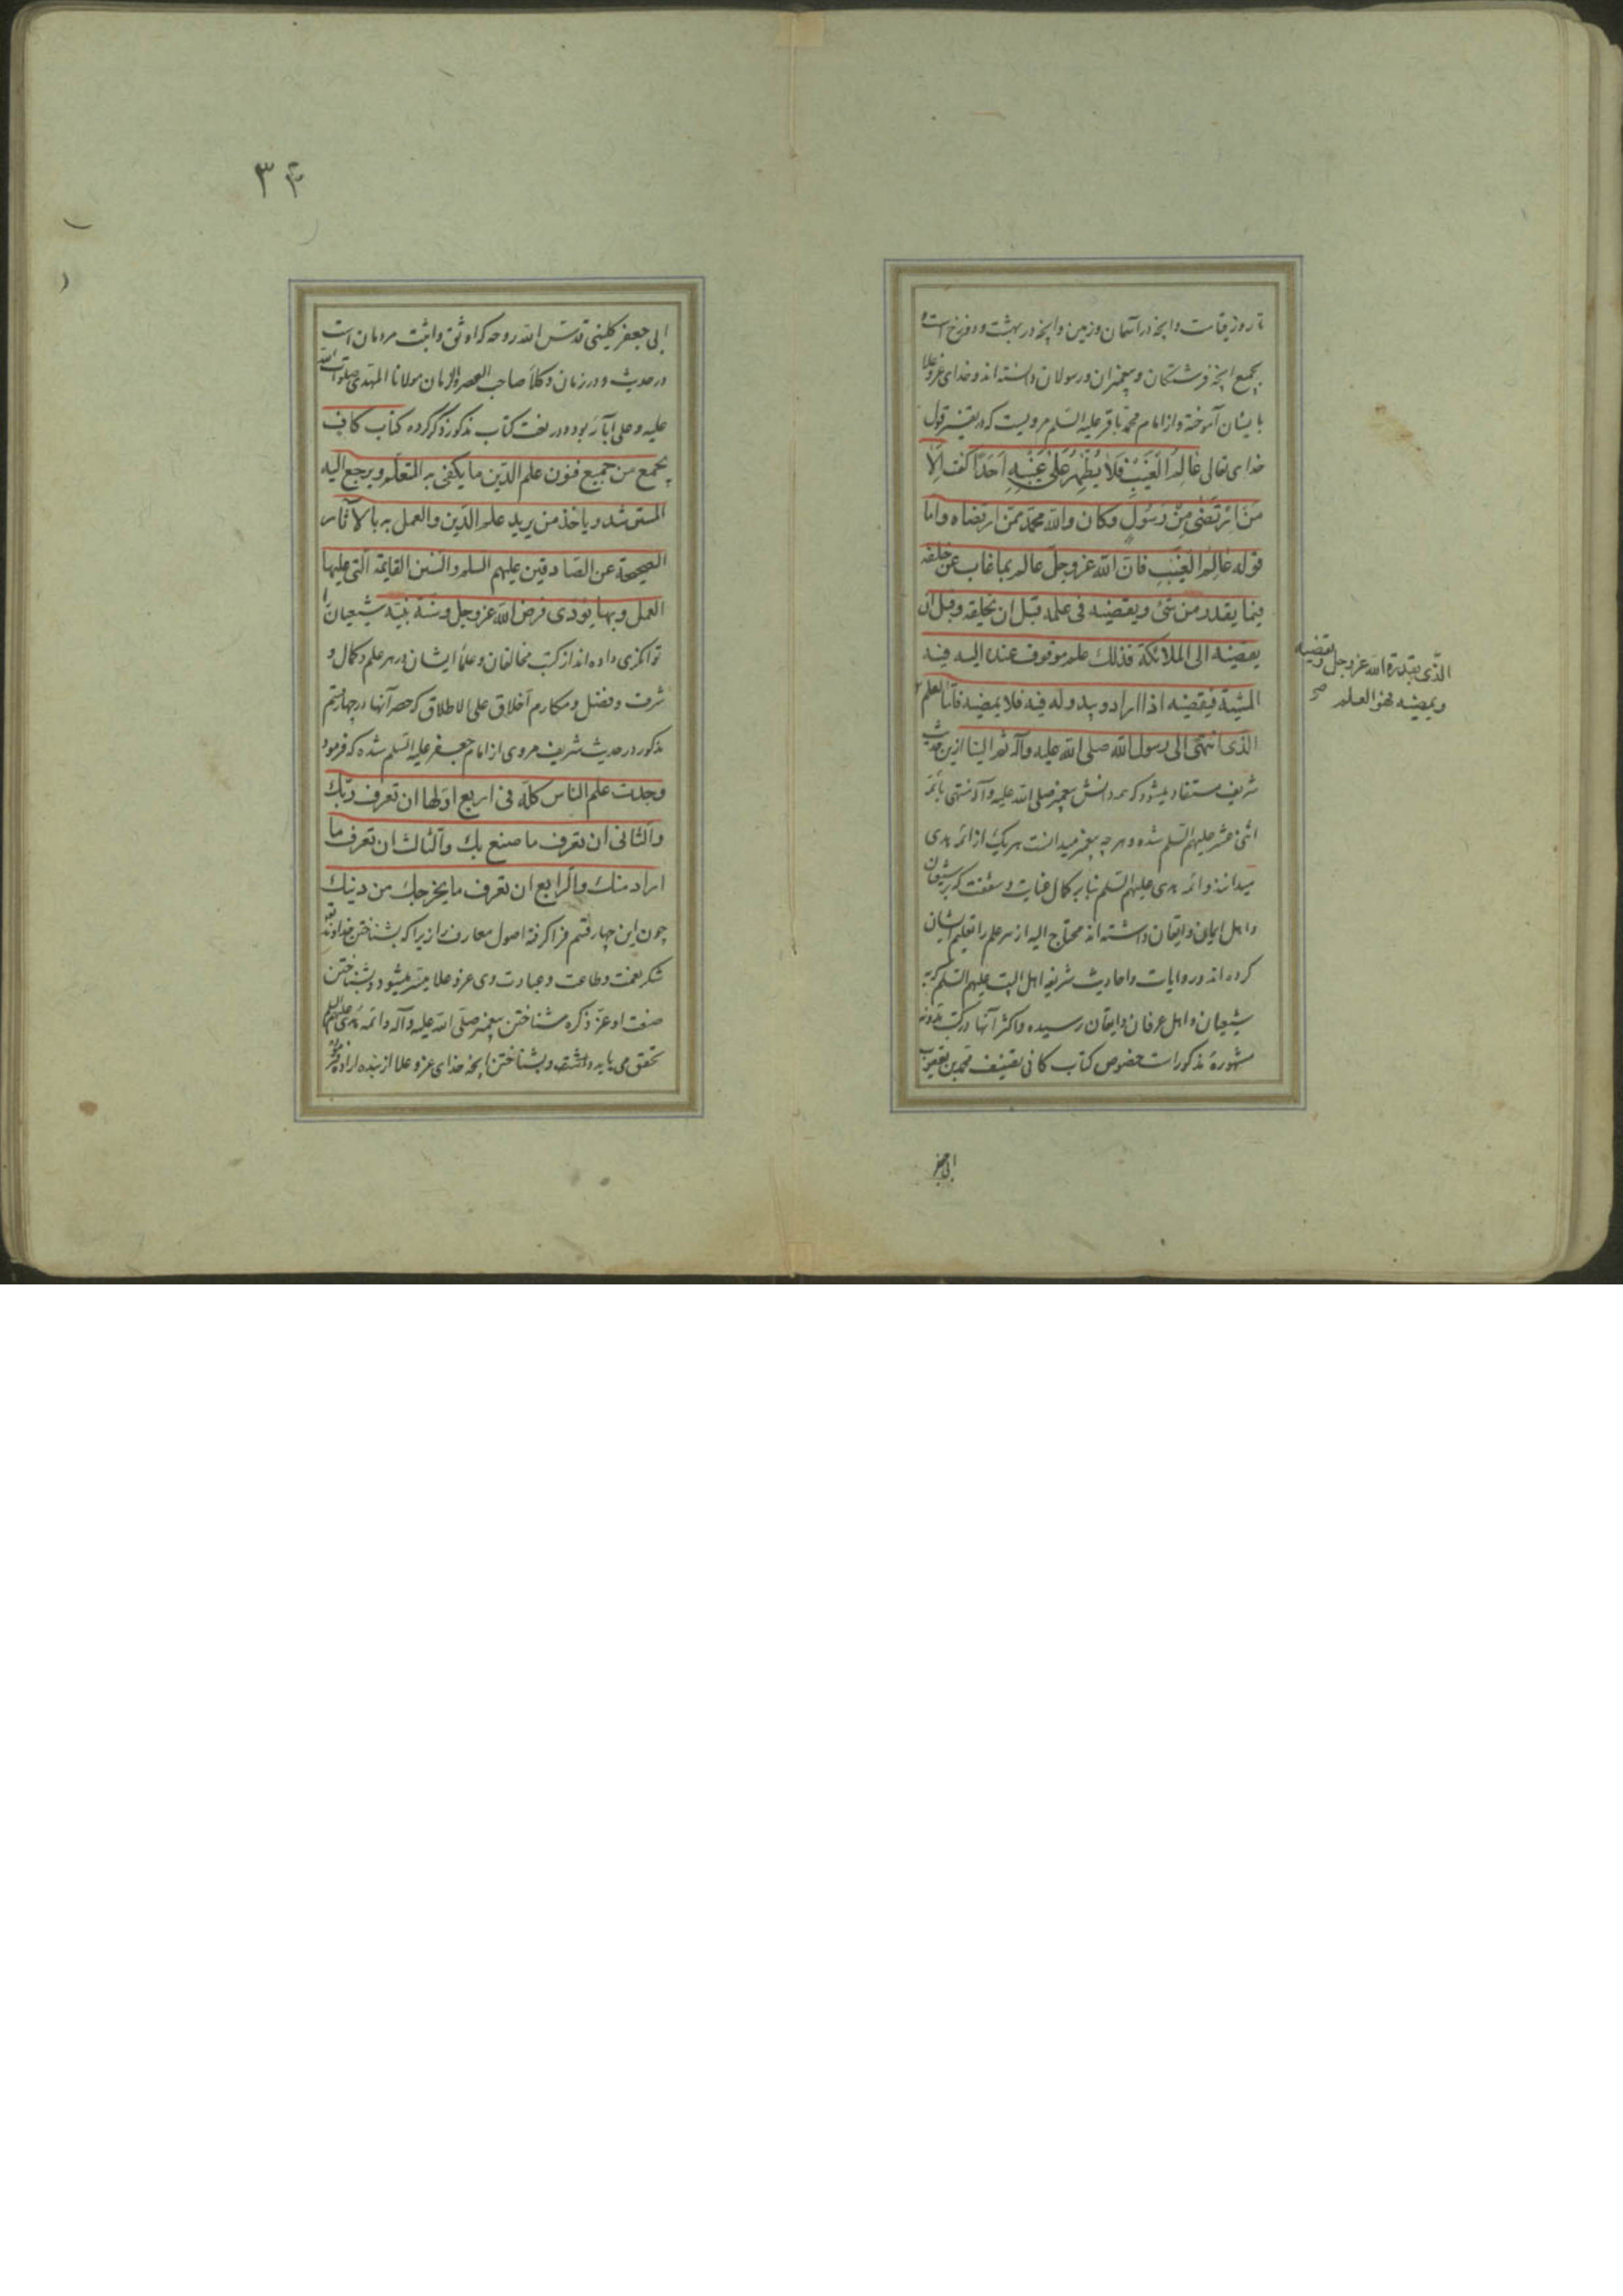 تا روز قیامت و آنچه در آسمان و زمین و آنچه در بهشت و دوزخ است و
بجمیع آنچه فرشتگان و پیغمبران و رسولان دانسته اند و خدای عز و علا
بایشان آموخته و از امام محمد باقر علیه السلم مرویست که در تفسیر قول
خدای تعالی عَالِمُ الْغَیْبِ فَلَا یُظْهِرُ عَلَى غَیْبِهِ اَحَدًا گفت اِلَّا
مَنِ ارْتَضَى مِنْ رَسُولٍ وکان والله محمد ممن ارتضاه واما
قوله عَالِمُ الْغَیْبِ فان الله عز وجل عالم بما غاب عن خلقه
فیما یقدر من شئ ویقضیه فی علمه قبل ان یخلقه وقبل ان
یقضیه الی الملائکة فذلك علم موقوف عنده الیه فیه
المشیة فیقضیه اذا اراد ویبدو له فیه فلا یمضیه فاما العلم
الذی یقدره الله عز وجل ویقضیه
ویمضیه فهو العلم صح
الذی انتهی الی رسول الله صلی الله علیه وآله ثم الینا ازین حدیث
شریف مستفاد میشود که همه دانش پیغمبر صلی الله علیه و آله منتهی بائمه
اثنی عشر علیهم السلم شده و هر چه پیغمبر میدانست هر یک از ائمه هدی
میدانند و ائمه هدی علیهم السلم بنابر کمال عنایت و شفقت که بر شیعیان
و اهل ایمان و ایقان داشته اند محتاج الیه از هر علم را تعلیم ایشان
کرده اند و روایات و احادیث شریفه اهل البیت علیهم السلم که به
شیعیان و اهل عرفان و ایقان رسیده و اکثر آنها در کتب مدونه
مشهوره مذکور است خصوص کتاب کافی تصنیف محمد بن یعقوب
ابی جعفر
۳۴
ابی جعفر کلینی قدس الله روحه که اوثق و اثبت مردمان است
در حدیث و در زمان وکلاء صاحب العصر والزمان مولانا المهتدی صلوات الله
علیه و علی آبائه بوده و در نعت کتاب مذکور ذکر کرده کتاب کاف
یجمع من جمیع فنون علم الدین ما یکفی به المتعلم ویرجع الیه
المسترشد ویاخذ من یرید علم الدین والعمل به بالآثار
الصحیحة عن الصادقین علیهم السلم والسنن القایمة التی علیها
العمل وبها یؤدی فرض الله عز وجل وسنة نبیه شیعیان را
توانگری داده اند از کتب مخالفان و علماء ایشان در هر علم و کمال و
شرف و فضل و مکارم اخلاق علی الاطلاق که حصر آنها در چهار قسم
مذکور در حدیث شریف مروی از امام جعفر علیه السلم شده که فرمود
وجدت علم الناس کله فی اربع اولها ان تعرف ربّك
والثانی ان تعرف ما صنع بك والثالث ان تعرف ما
اراد منك والرابع ان تعرف ما یخرجك من دینك
چون این چهار قسم فرا گرفته اصول معارف را زیرا که بشناختن خداوند
شکر نعمت و طاعت و عبادت وی عز و علا میسر میشود و بشناختن
صنعت او عز ذکره شناختن پیغمبر صلی الله علیه و آله و ائمه هدی علیهم السلم
تحقق می یابد و بشناختن آنچه خدای عز و علا از بنده اراده